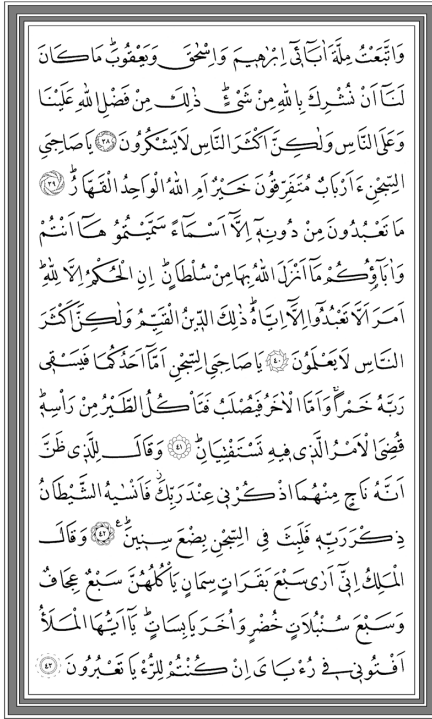 وَاتَّبَعْتُ مِلَّةَ اٰبَٓاءٖٓى اِبْرٰهٖيمَ وَاِسْحٰقَ وَيَعْقُوبَؕ مَا كَانَ
لَنَٓا اَنْ نُشْرِكَ بِاللّٰهِ مِنْ شَیْءٍؕ ذٰلِكَ مِنْ فَضْلِ اللّٰهِ عَلَيْنَا
وَعَلَى النَّاسِ وَلٰكِنَّ اَكْثَرَ النَّاسِ لَا يَشْكُرُونَ ﴿٣٨﴾ يَا صَاحِبَیِ
السِّجْنِ ءَاَرْبَابٌ مُتَفَرِّقُونَ خَيْرٌ اَمِ اللّٰهُ الْوَاحِدُ الْقَهَّارُؕ ﴿٣٩﴾
مَا تَعْبُدُونَ مِنْ دُونِهٖٓ اِلَّٓا اَسْمَٓاءً سَمَّيْتُمُوهَٓا اَنْتُمْ
وَاٰبَٓاؤُ۬كُمْ مَٓا اَنْزَلَ اللّٰهُ بِهَا مِنْ سُلْطَانٍؕ اِنِ الْحُكْمُ اِلَّا لِلّٰهِؕ
اَمَرَ اَلَّا تَعْبُدُٓوا اِلَّٓا اِيَّاهُؕ ذٰلِكَ الدّٖينُ الْقَيِّمُ وَلٰكِنَّ اَكْثَرَ
النَّاسِ لَا يَعْلَمُونَ ﴿٤٠﴾ يَا صَاحِبَیِ السِّجْنِ اَمَّٓا اَحَدُكُمَا فَيَسْقٖى
رَبَّهُ خَمْرًاۚ وَاَمَّا الْاٰخَرُ فَيُصْلَبُ فَتَاْكُلُ الطَّيْرُ مِنْ رَاْسِهٖؕ
قُضِیَ الْاَمْرُ الَّذٖى فٖيهِ تَسْتَفْتِيَانِؕ ﴿٤١﴾ وَقَالَ لِلَّذٖى ظَنَّ
اَنَّهُ نَاجٍ مِنْهُمَا اذْكُرْنٖى عِنْدَ رَبِّكَؗ فَاَنْسٰيهُ الشَّيْطَانُ
ذِكْرَ رَبِّهٖ فَلَبِثَ فِى السِّجْنِ بِضْعَ سِنٖينَؕ ﴿٤٢﴾ وَقَالَ
الْمَلِكُ اِنّٖٓى اَرٰى سَبْعَ بَقَرَاتٍ سِمَانٍ يَاْكُلُهُنَّ سَبْعٌ عِجَافٌ
وَسَبْعَ سُنْبُلَاتٍ خُضْرٍ وَاُخَرَ يَابِسَاتٍؕ يَٓا اَيُّهَا الْمَلَاُ
اَفْتُونٖى فٖى رُءْيَایَ اِنْ كُنْتُمْ لِلرُّءْيَا تَعْبُرُونَ ﴿٤٣﴾